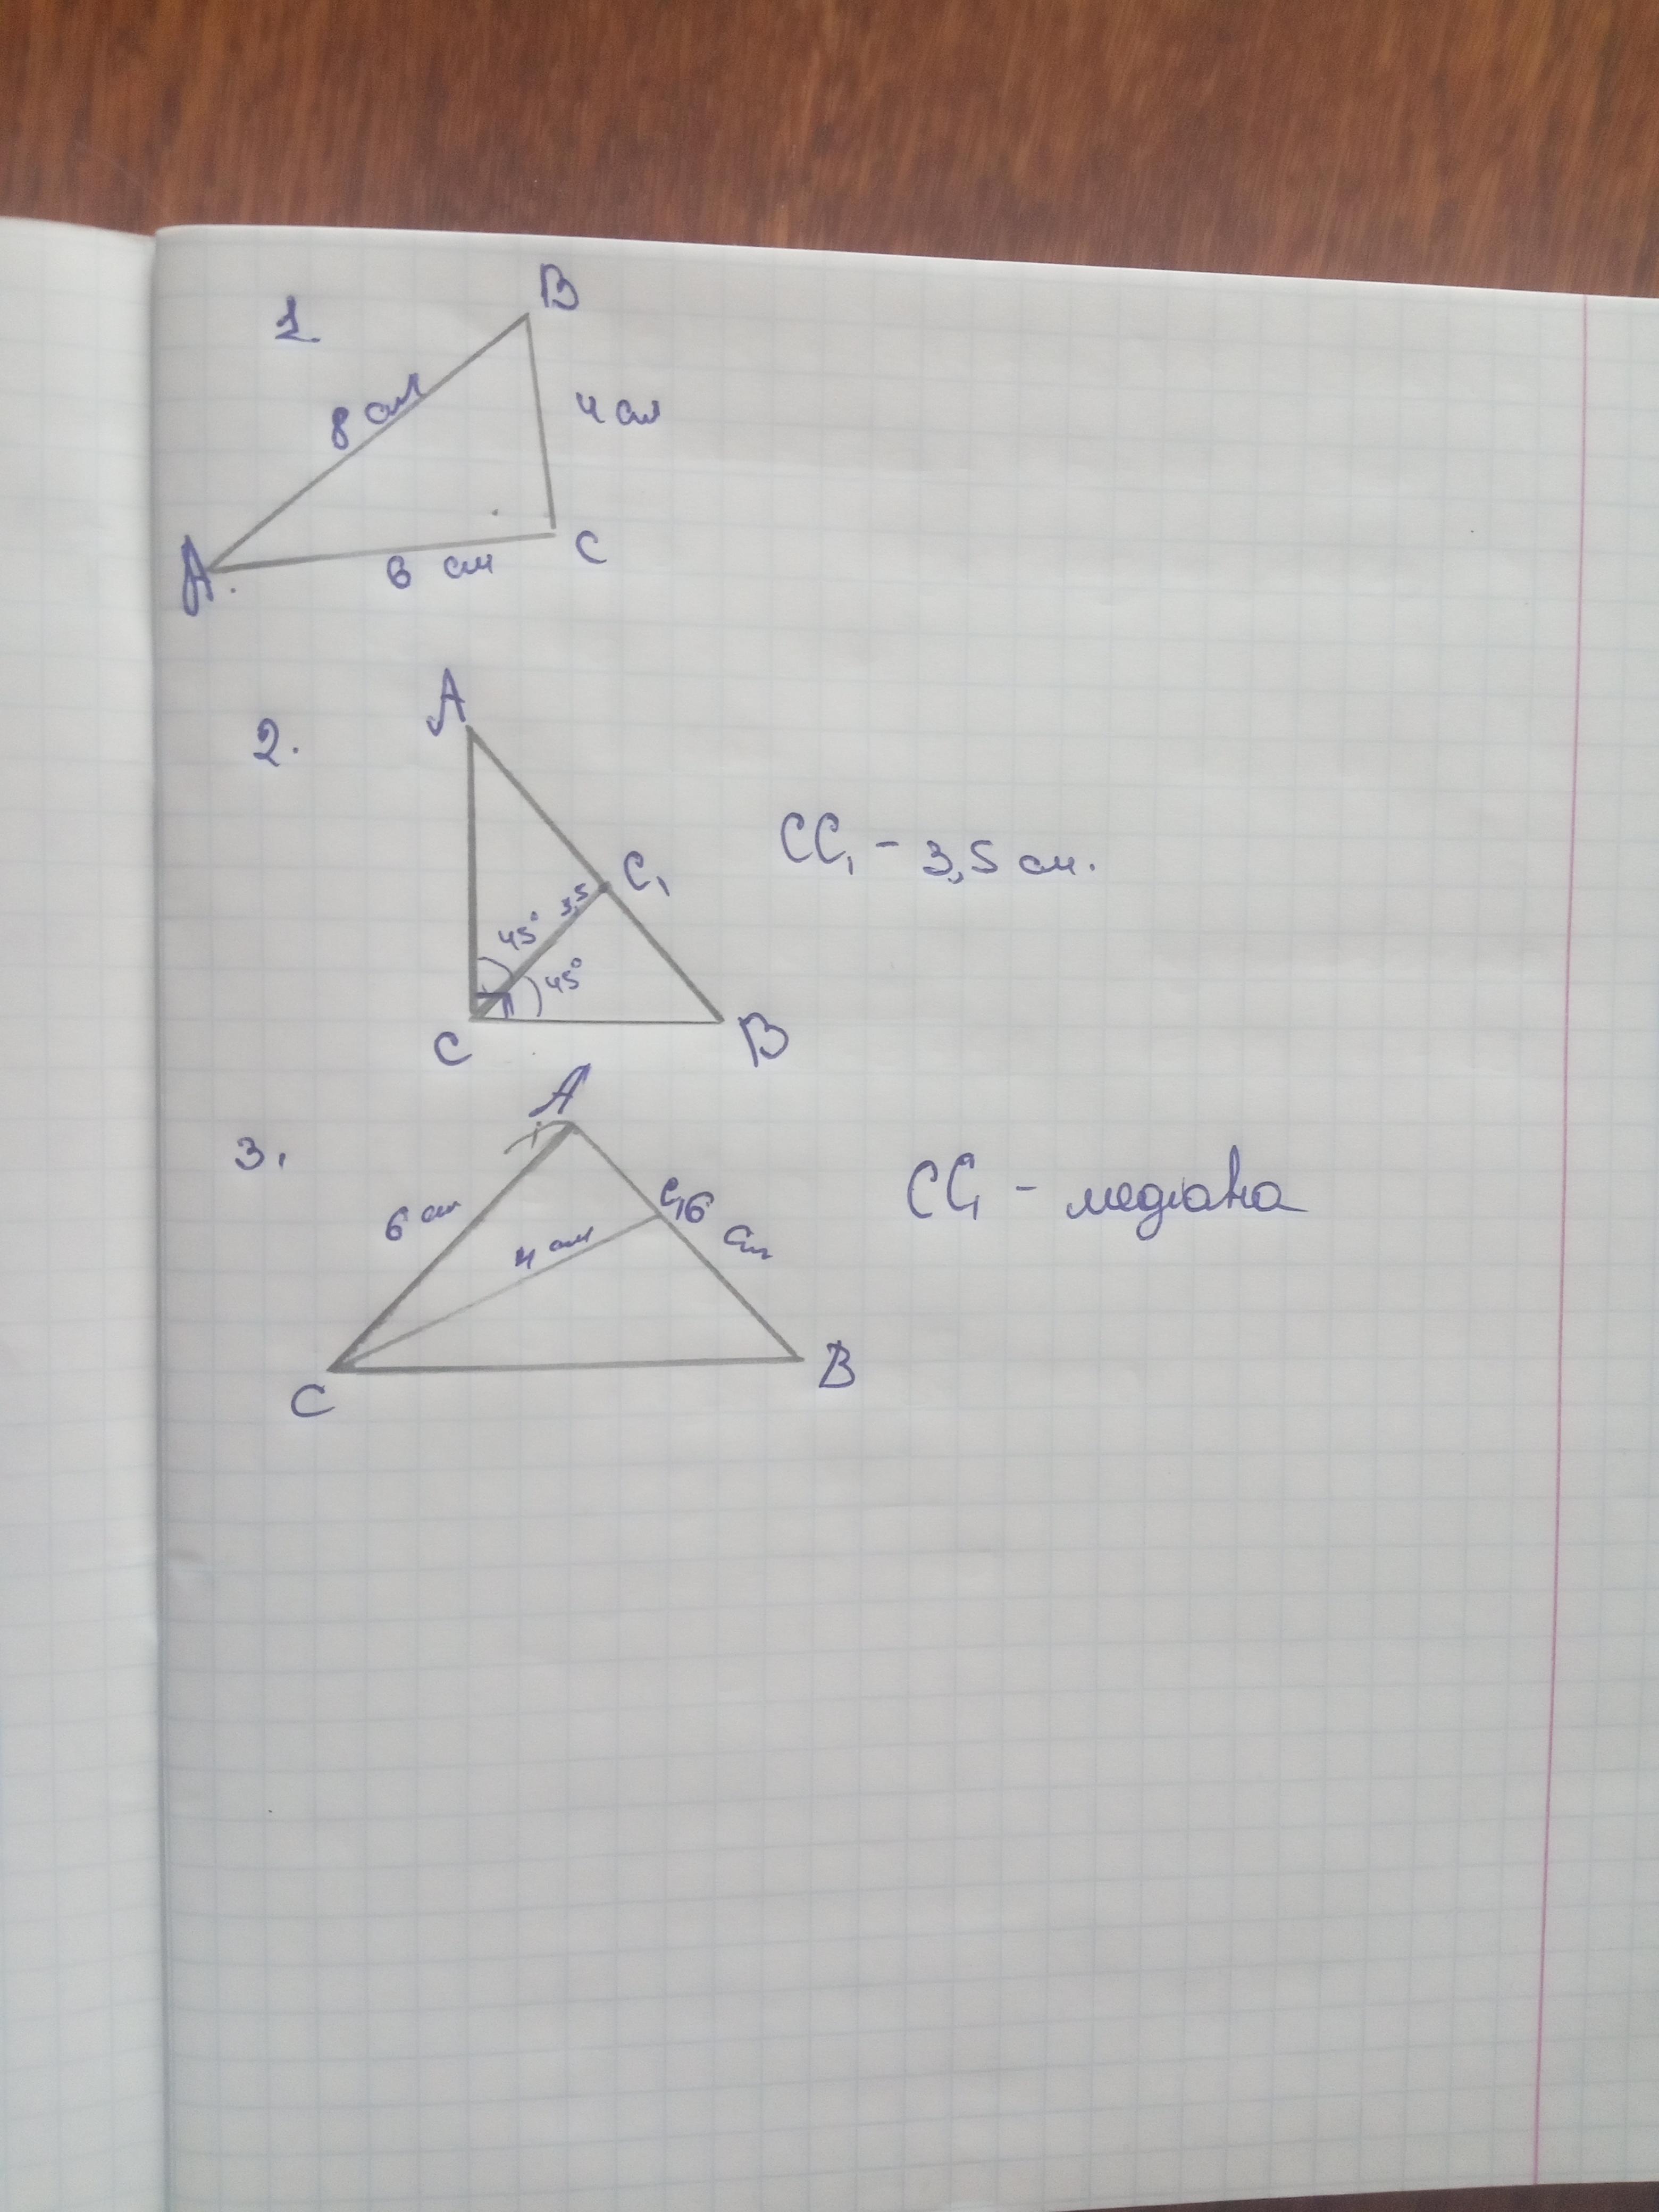 1.
B
8 см
4 см
A
6 см
C
2.
A
C₁
CC₁ - 3,5 см.
3,5
45°
45°
C
B
3.
A
CC₁ - медіана
6 см
C₁
6 см
4 см
C
B